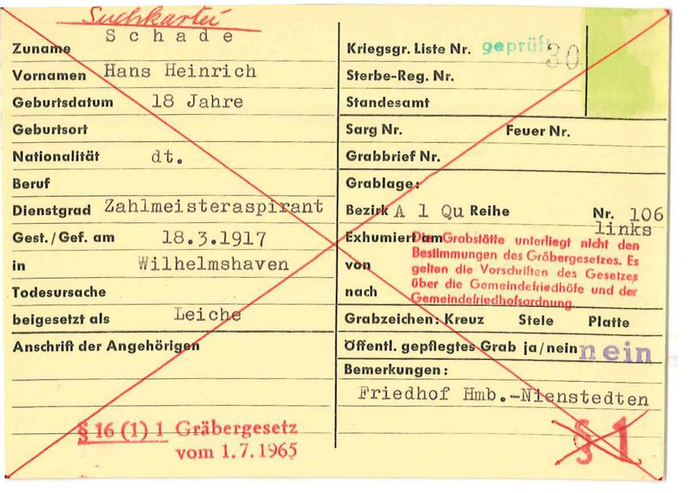 Suchkartei
Zuname Schade
Vornamen Hans Heinrich
Geburtsdatum 18 Jahre
Geburtsort
Nationalität dt.
Beruf
Dienstgrad Zahlmeisteraspirant
Gest./Gef. am 18.3.1917
in Wilhelmshaven
Todesursache
beigesetzt als Leiche
Anschrift der Angehörigen
§ 16 (1) 1 Gräbergesetz
vom 1.7.1965
Kriegsgr. Liste Nr. geprüft 30
Sterbe-Reg. Nr.
Standesamt
Sarg Nr. Feuer Nr.
Grabbrief Nr.
Grablage:
Bezirk A 1 Qu Reihe Nr. 106
links
Exhumiert am
von
nach
Die Grabstätte unterliegt nicht den
Bestimmungen des Gräbergesetzes. Es
gelten die Vorschriften des Gesetzes
über die Gemeindefriedhöfe und der
Gemeindefriedhofsordnung.
Grabzeichen: Kreuz Stele Platte
Öffentl. gepflegtes Grab ja/nein nein
Bemerkungen:
Friedhof Hmb.-Nienstedten
§ 1